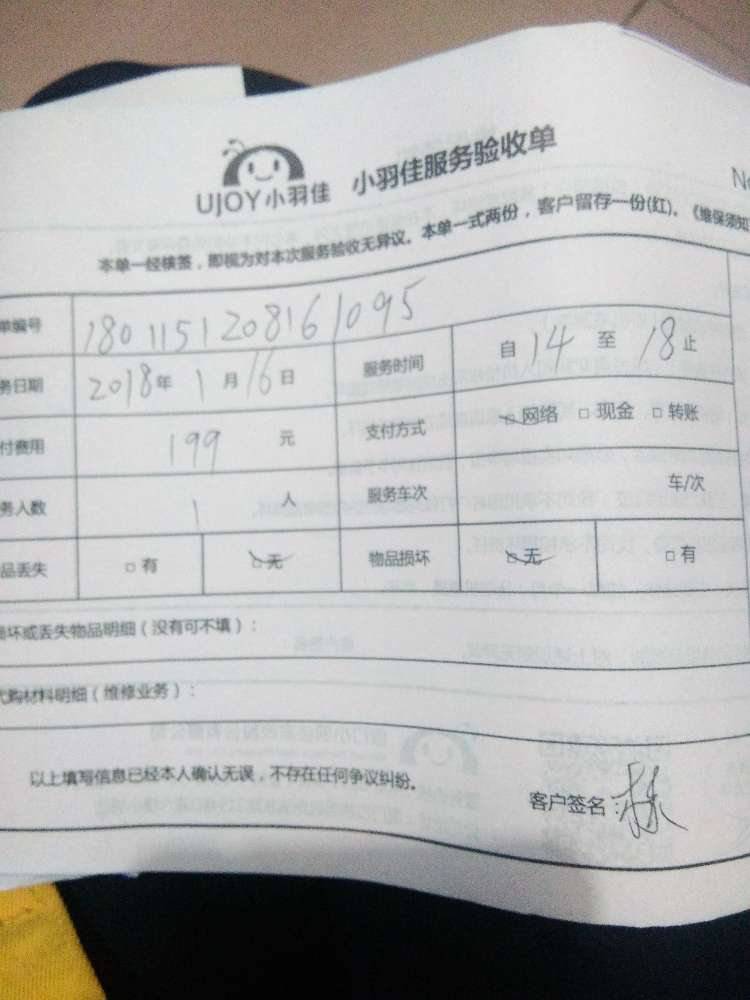 UJOY小羽佳 小羽佳服务验收单
No
本单一经核签，即视为对本次服务验收无异议。本单一式两份，客户留存一份(红)。《维保须知
单编号 1801151208161095
务日期 2018年 1月16日 服务时间 自14至18止
付费用 199 元 支付方式 □网络 □现金 □转账
务人数 1 人 服务车次 车/次
品丢失 □有 □无 物品损坏 □无 □有
损坏或丢失物品明细（没有可不填）：
代购材料明细（维修业务）：
以上填写信息已经本人确认无误，不存在任何争议纠纷。
客户签名：